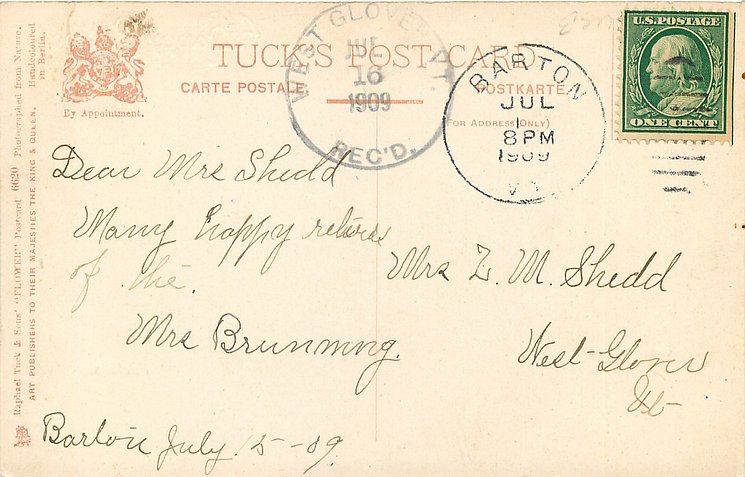 TUCK'S POST CARD
CARTE POSTALE
POSTKARTE
(FOR ADDRESS ONLY)
By Appointment.
WEST GLOVER, VT.
JUL
16
1909
REC'D.
BARTON
JUL
8 PM
1909
VT
U.S. POSTAGE
ONE CENT
Dear Mrs Shedd
Many happy returns
of the.
Mrs Brunning.
Barton July 15-09.
Mrs Z. M. Shedd
West Glover
Vt
Raphael Tuck & Sons' "FLOWER" Postcard 6620 Photographed from Nature. Handcoloured
in Berlin.
ART PUBLISHERS TO THEIR MAJESTIES THE KING & QUEEN.